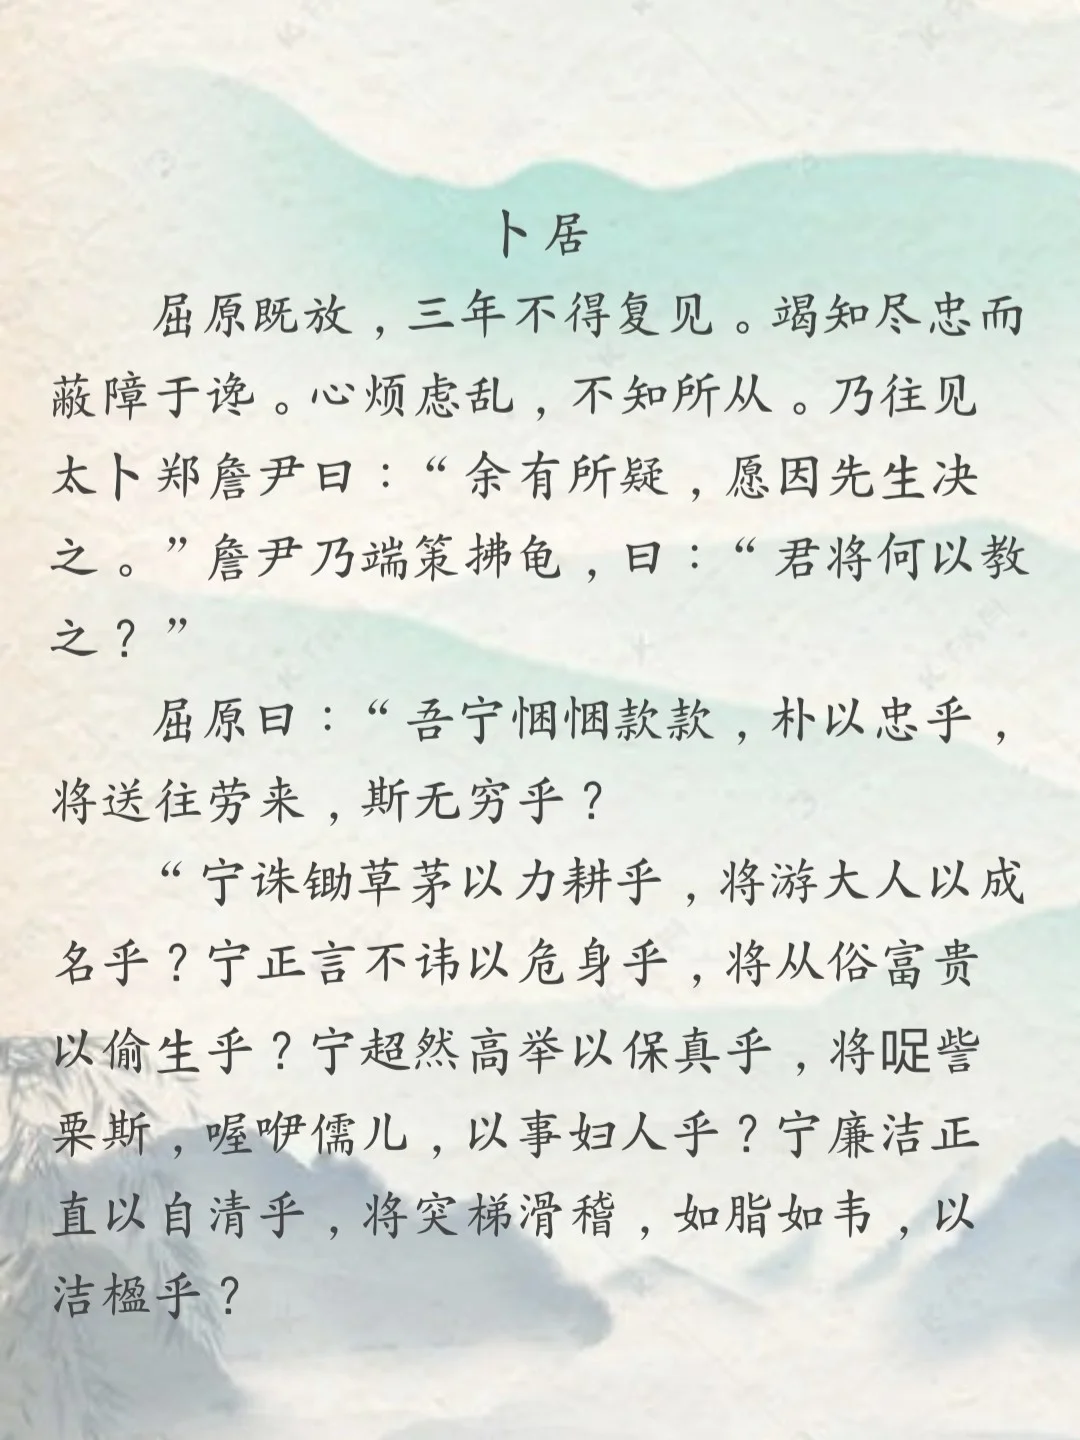 卜居
屈原既放，三年不得复见。竭知尽忠而
蔽障于谗。心烦虑乱，不知所从。乃往见
太卜郑詹尹曰：“余有所疑，愿因先生决
之。”詹尹乃端策拂龟，曰：“君将何以教
之？”
屈原曰：“吾宁悃悃款款，朴以忠乎，
将送往劳来，斯无穷乎？
“宁诛锄草茅以力耕乎，将游大人以成
名乎？宁正言不讳以危身乎，将从俗富贵
以偷生乎？宁超然高举以保真乎，将哫訾
栗斯，喔咿儒儿，以事妇人乎？宁廉洁正
直以自清乎，将突梯滑稽，如脂如韦，以
洁楹乎？